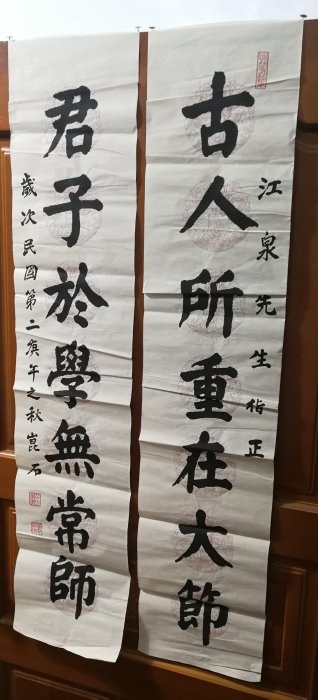 古人所重在大節
江泉先生偕正
君子於學無常師
歲次民國第二庚午之秋崑石